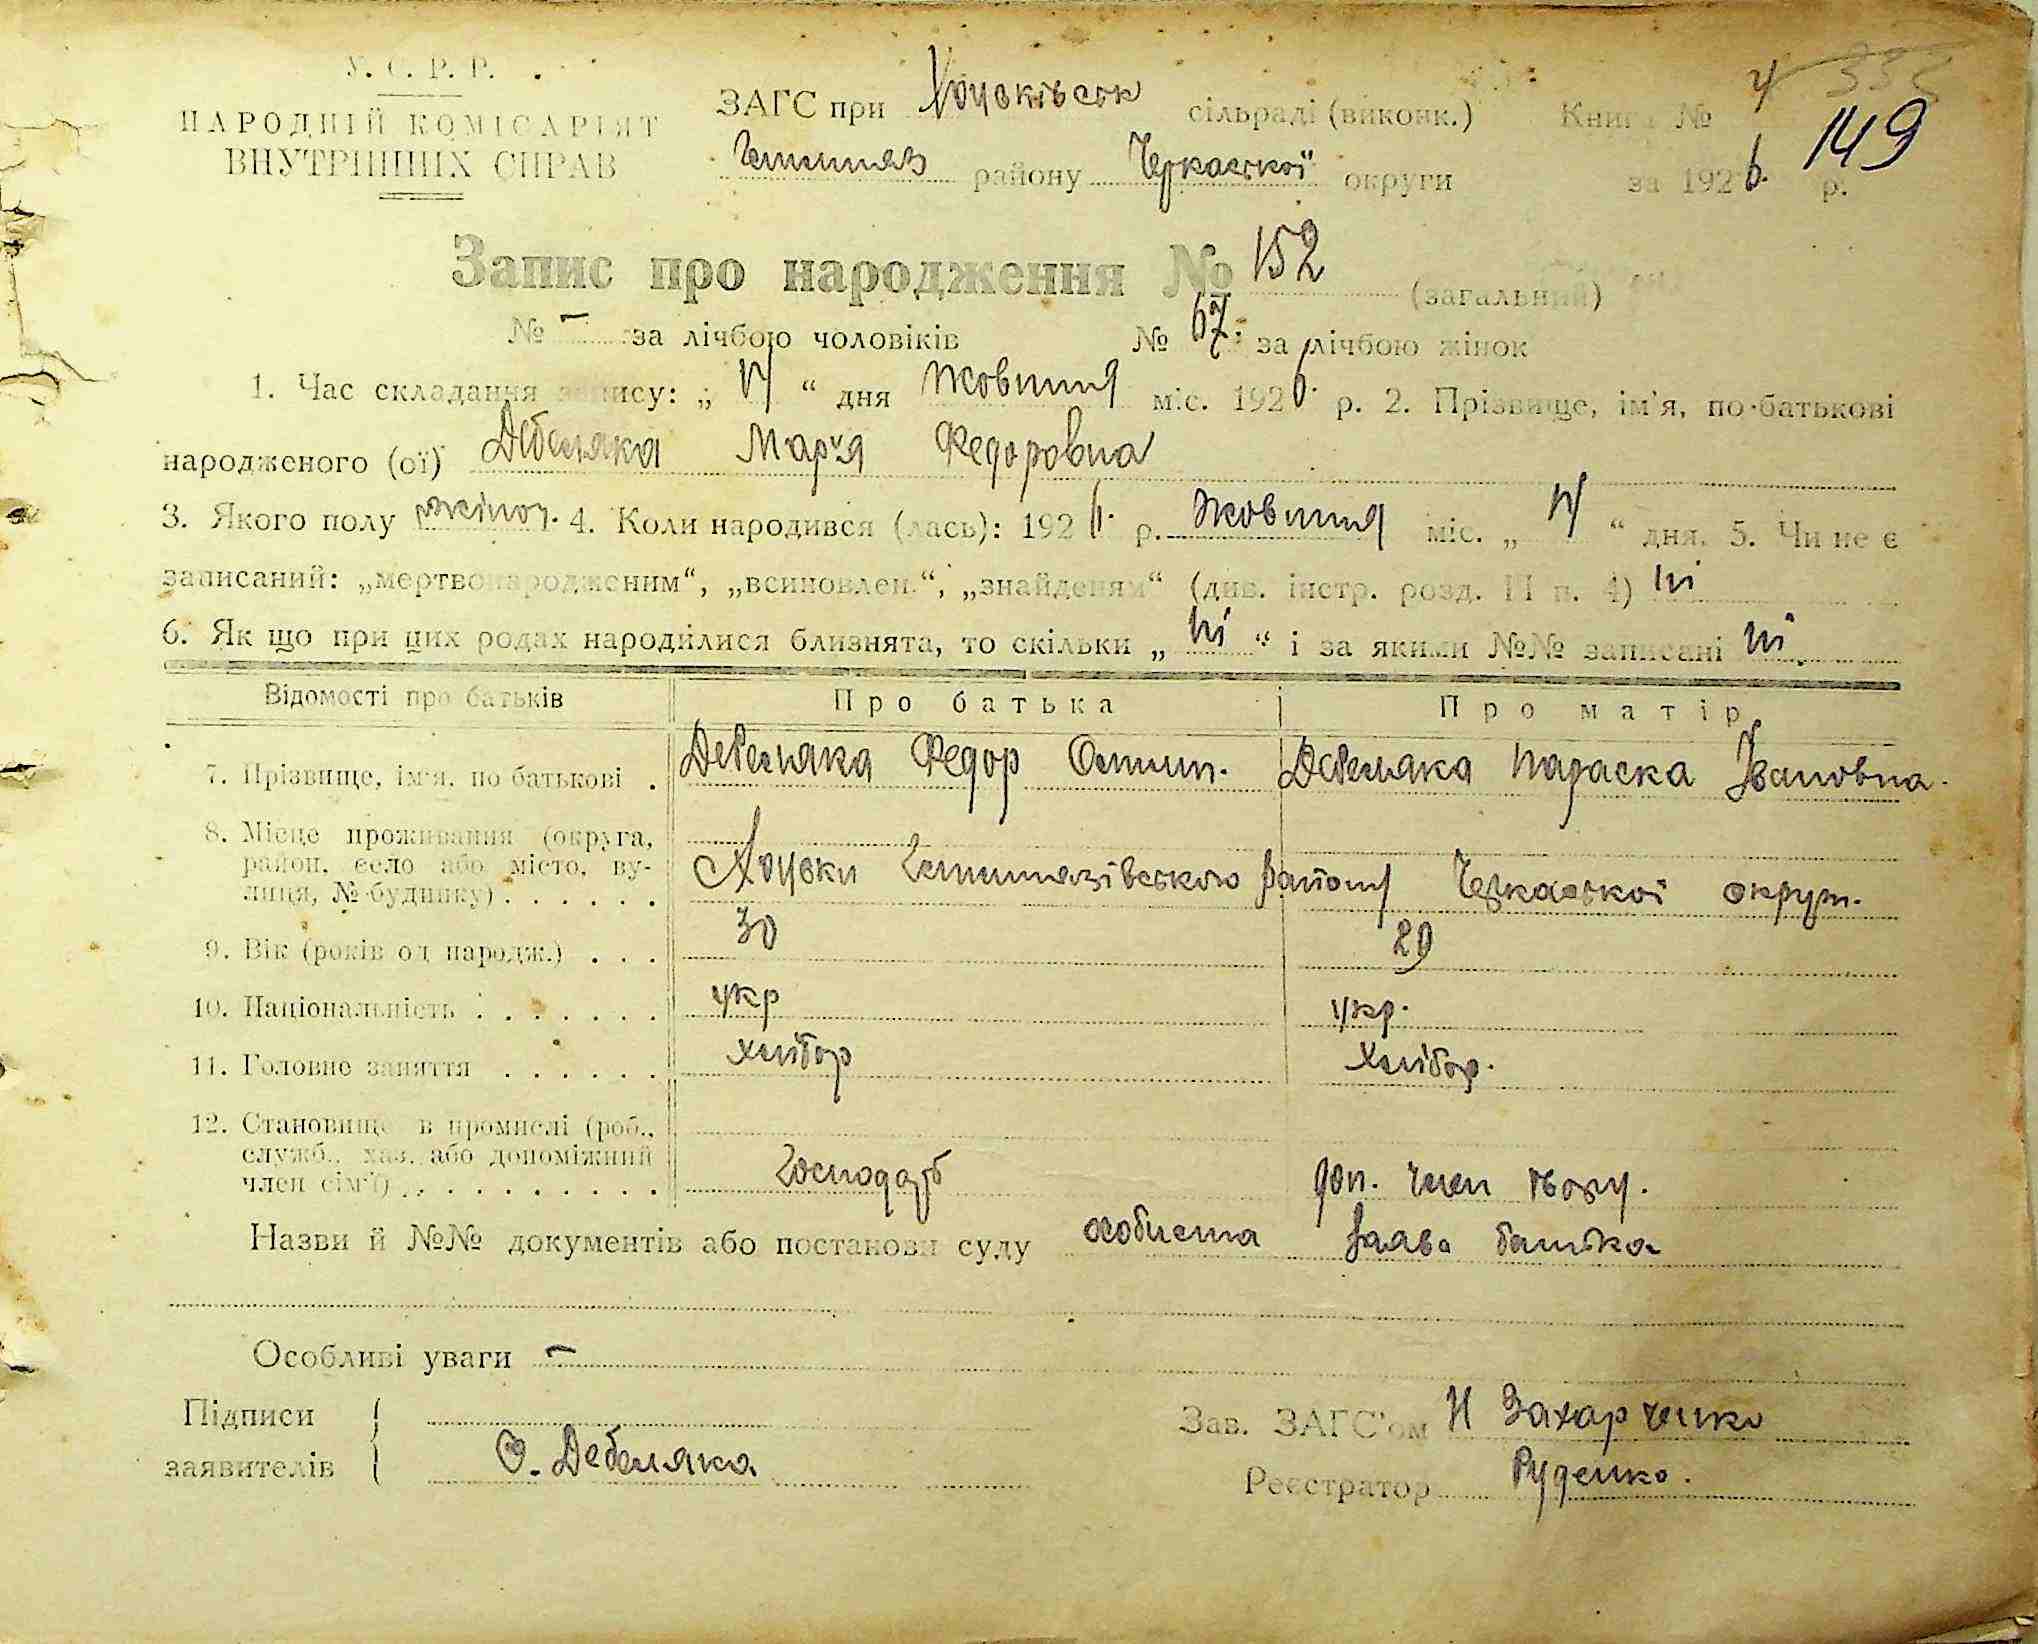 У. С. Р. Р.
НАРОДНІЙ КОМІСАРІЯТ
ВНУТРІШНІХ СПРАВ
ЗАГС при Хоцьківськ сільраді (виконк.)
Гельмязів району Черкаської округи
Книга № 4
149
за 1926 р.
Запис про народження № 152 (загальний)
№ - за лічбою чоловіків № 67. за лічбою жінок
1. Час складання запису: „ 14 “ дня жовтня міс. 1926. р. 2. Прізвище, ім'я, по-батькові
народженого (ої) Дебеляка Марія Федоровна
3. Якого полу жіноч. 4. Коли народився (лась): 1926. р. жовтня міс. „ 14 “ дня. 5. Чи не є
записаний: „мертвонародженим“, „всиновлен.“, „знайденям“ (див. інстр. розд. II п. 4) ні
6. Як що при цих родах народилися близнята, то скільки „ ні “ і за якими №№ записані ні.
Відомості про батьків Про батька Про матір
7. Прізвище, ім'я, по батькові . Дебеляка Федор Остип. Дебеляка Параска Івановна.
8. Місце проживання (округа,
район, село або місто, ву-
лиця, № будинку) . . . . . . Хоцьки Гельмязівського району Черкаської округи.
9. Вік (років од народж.) . . . 30 29
10. Національність . . . . . . . укр укр.
11. Головне заняття . . . . . . хлібор хлібор.
12. Становище в промислі (роб.,
служб., хаз. або допоміжний
член сім'ї) . . . . . . . . . . Господарь доп. член
Назви й №№ документів або постанови суду особиста заява батька
Особливі уваги -
Підписи
заявителів Ф. Дебеляка
Зав. ЗАГС'ом Н Захарченко
Реєстратор Руденко.